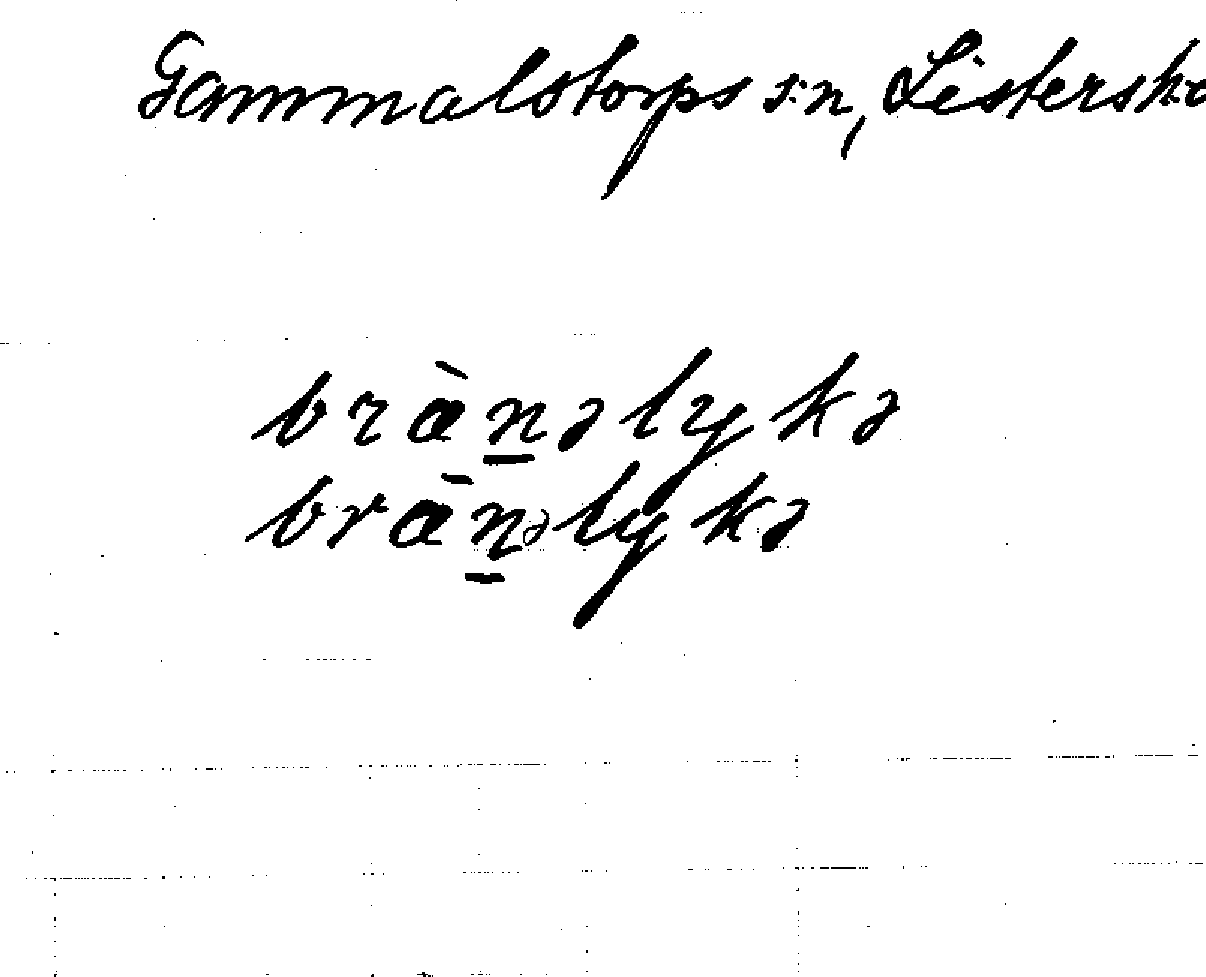 Gammalstorps s:n, Listersh
bràn̲əlykə
bràn̲əlykə